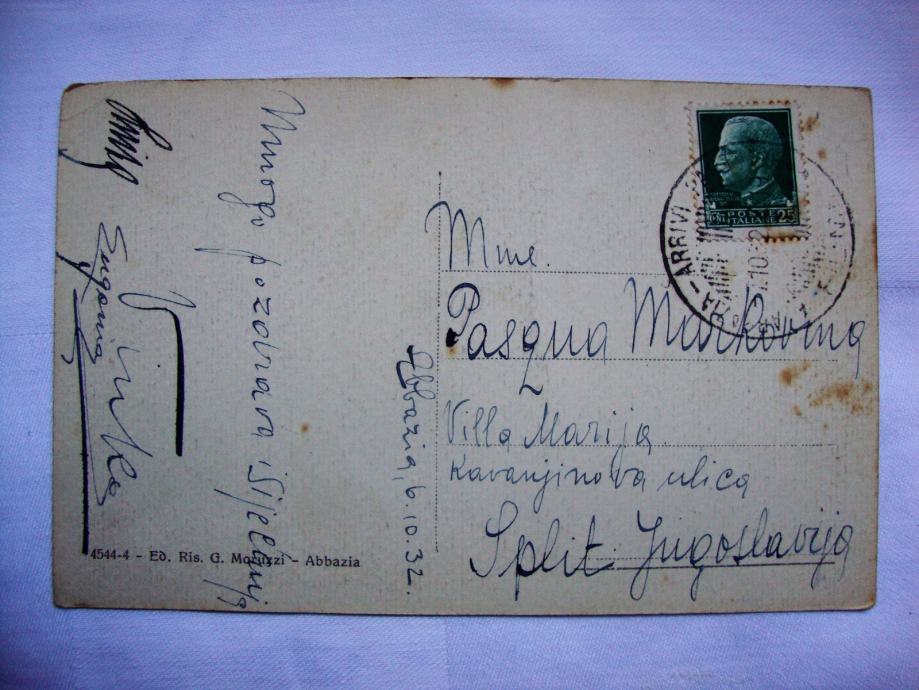 Mnogo pozdrava i
Eugenia
Abbazia, 6.10.32.
4544-4 - Ed. Ris. G. Moruzzi - Abbazia
POSTE
ITALIANE 25
ARRIVI
Mme.
Pasqua Markovina
Villa Marija.
Kavanjinova ulica
Split Jugoslavija